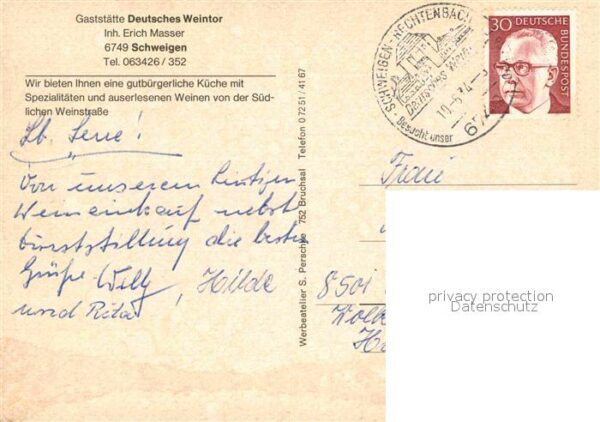 Gaststätte Deutsches Weintor
Inh. Erich Masser
6749 Schweigen
Tel. 063426 / 352
Wir bieten Ihnen eine gutbürgerliche Küche mit
Spezialitäten und auserlesenen Weinen von der Süd-
lichen Weinstraße
Lb. Lene!
Von unserem heutigen
Weineinkauf nebst
die besten
Grüße Willy, Hilde
und Rita
Werbeatelier S. Perschke 752 Bruchsal Telefon 0 72 51 / 41 67
SCHWEIGEN-RECHTENBACH
Deutsches Wein-
Besucht unser
30 DEUTSCHE
BUNDESPOST
Frau
8501
privacy protection
Datenschutz